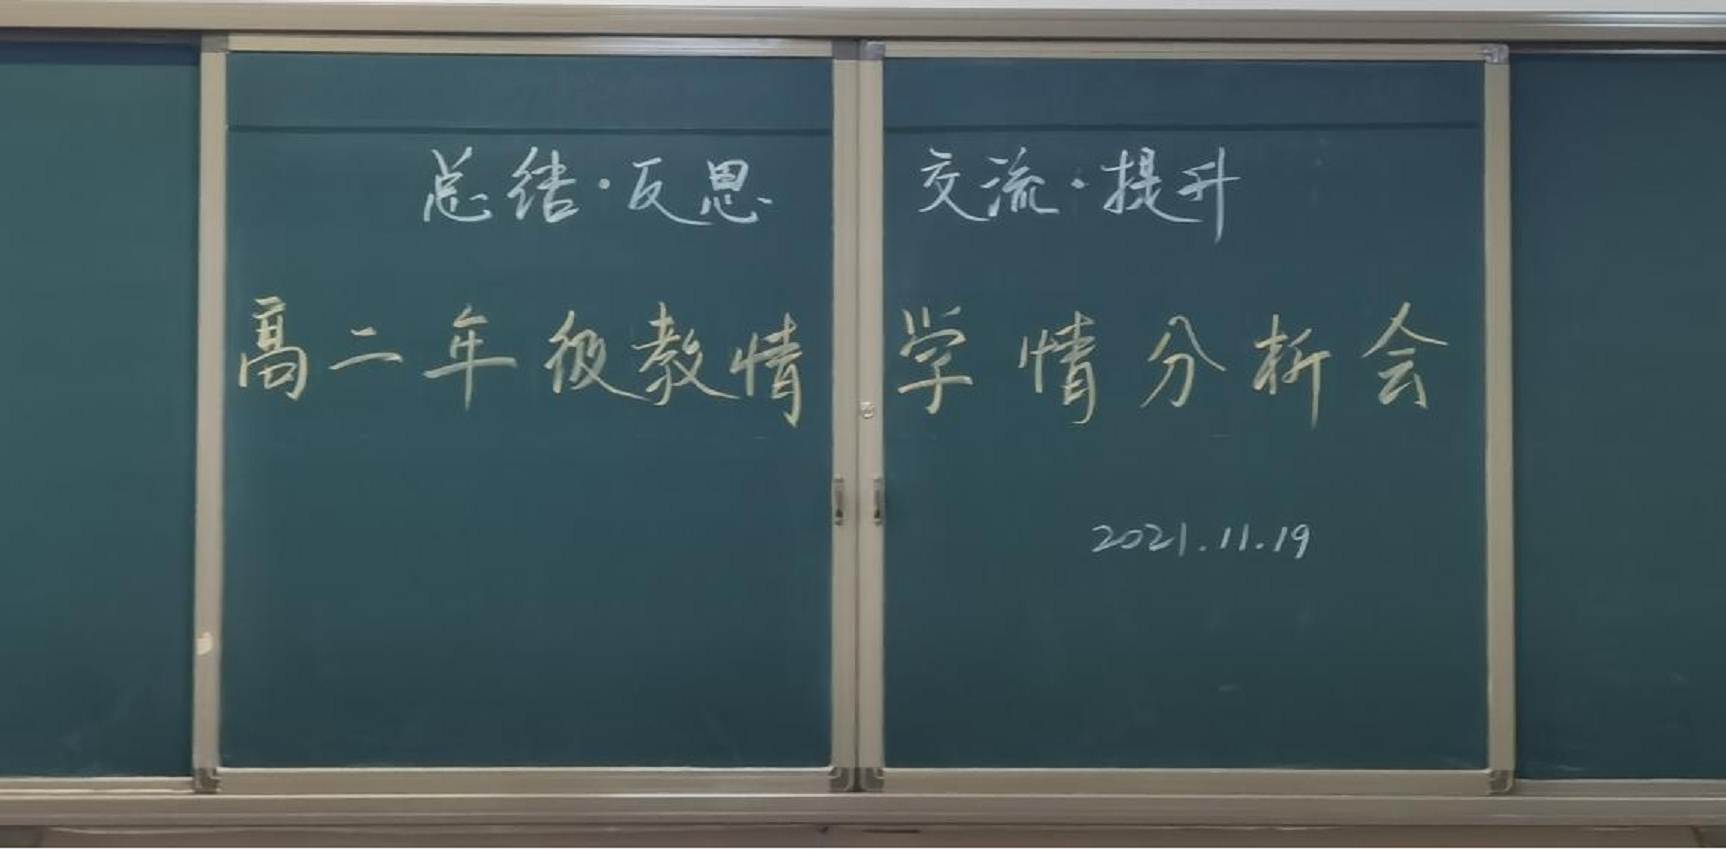 总结·反思 交流·提升
高二年级教情 学情分析会
2021.11.19